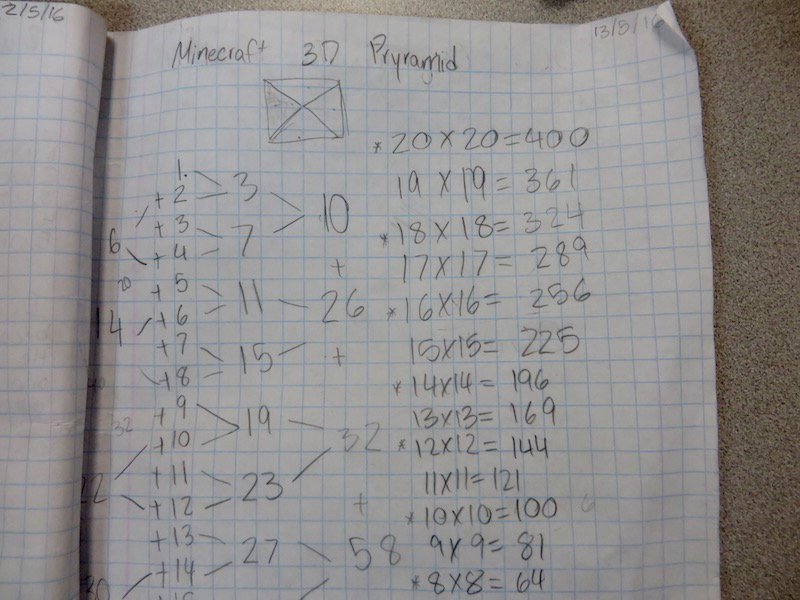 2/5/16
13/5/16
Minecraft 3D Pryramid
* 20 x 20 = 400
19 x 19 = 361
* 18 x 18 = 324
17 x 17 = 289
* 16 x 16 = 256
15 x 15 = 225
* 14 x 14 = 196
13 x 13 = 169
* 12 x 12 = 144
11 x 11 = 121
* 10 x 10 = 100
9 x 9 = 81
* 8 x 8 = 64
1.
+ 2
3
+ 3
+ 4
7
10
+
+ 5
+ 6
11
+ 7
+ 8
15
26
+
+ 9
+ 10
19
+ 11
+ 12
23
32
+
+ 13
+ 14
27
58
6
20
14
32
22